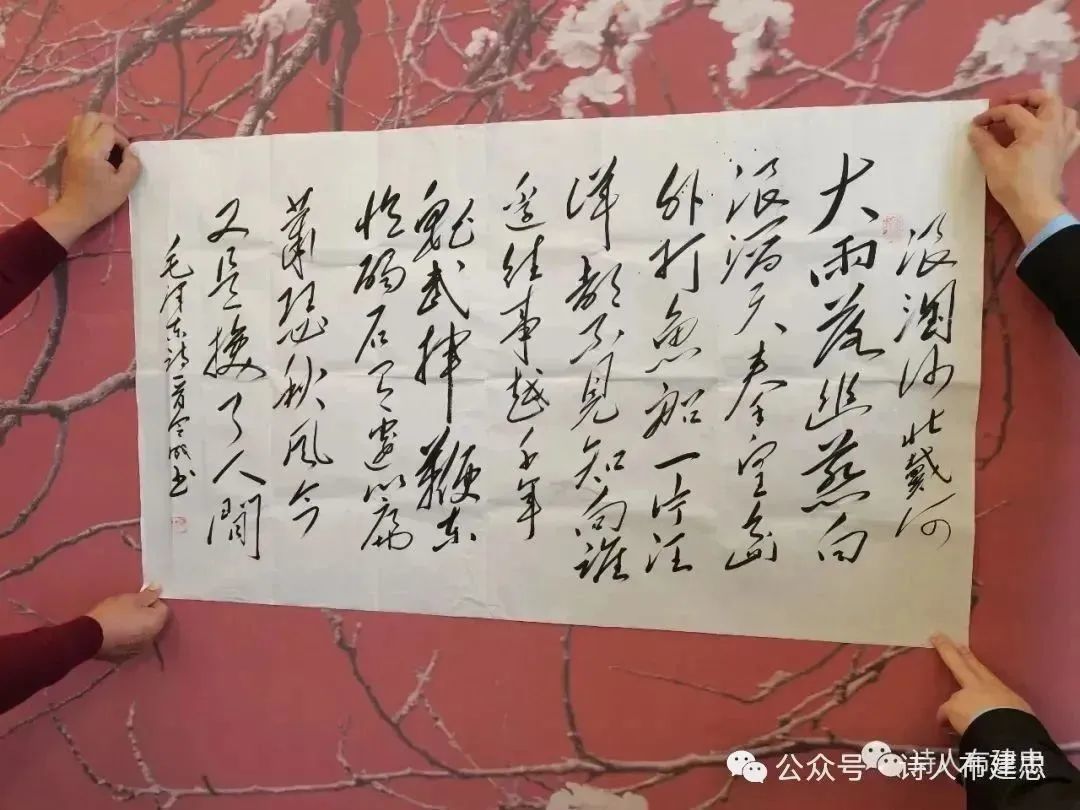 浪淘沙北戴河
大雨落幽燕白
浪滔天秦皇岛
外打鱼船一片汪
洋都不见知向谁
边往事越千年
魏武挥鞭东
临碣石有遗篇
萧瑟秋风今
又是换了人間
毛泽东诗一首 书
公众号 · 诗人布建忠